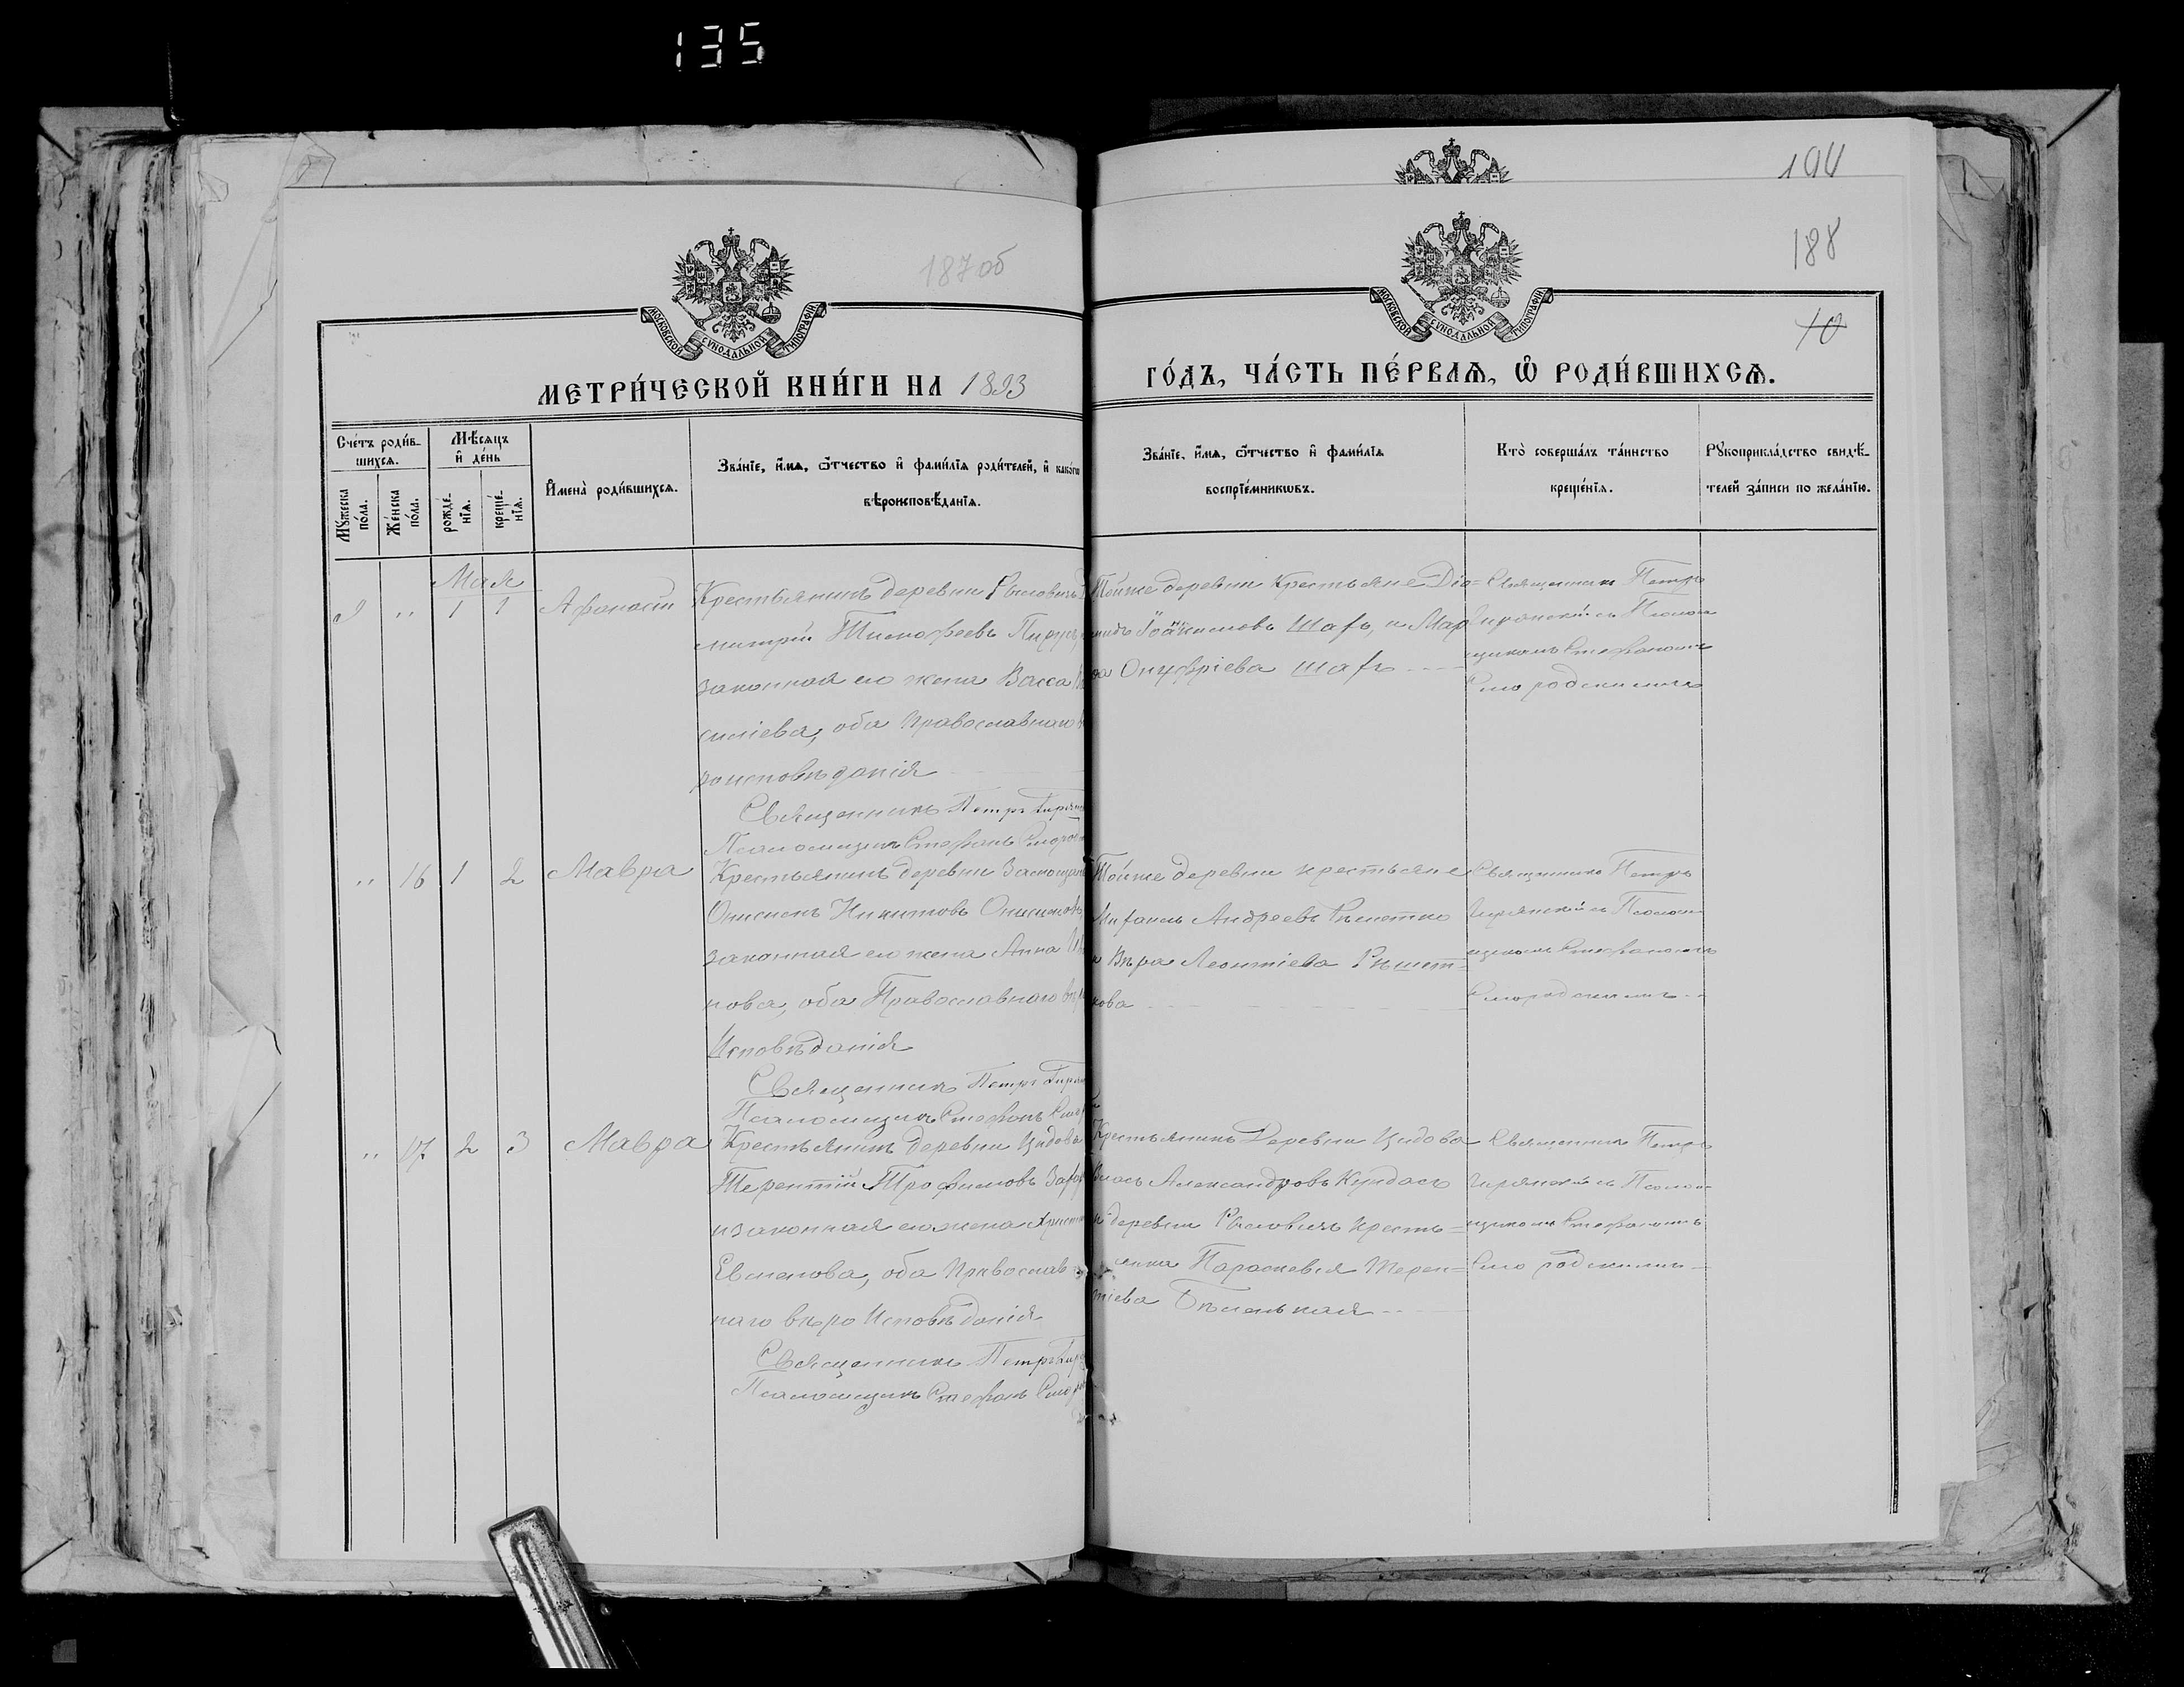 135
194
187 об
188
10
МОСКОВСКОЙ СѴНОДАЛЬНОЙ ТИПОГРАФІИ
МОСКОВСКОЙ СѴНОДАЛЬНОЙ ТИПОГРАФІИ
МЕТРИ́ЧЕСКОЙ КНИ́ГИ НА 1893
ГО́ДЪ, ЧА́СТЬ ПЕ́РВАѦ, Ѽ РОДИ́ВШИХСѦ.
Сче́тъ роди́в-
шихсѧ.
Мѣ́сѧцъ
и҆ де́нь
Мꙋ́жеска
по́ла.
Же́нска
по́ла.
рожде́-
нїѧ.
креще́-
нїѧ.
И҆мена̀ роди́вшихсѧ.
Зва́нїе, и҆́мѧ, ѻ҆́тчество и҆ фами́лїѧ роди́телей, и҆ како́гѡ
вѣроисповѣ́данїѧ.
Зва́нїе, и҆́мѧ, ѻ҆́тчество и҆ фами́лїѧ
воспрїе́мникѡвъ.
Кто̀ соверша́лъ та́инство
креще́нїѧ.
Рꙋкоприкла́дство свидѣ́-
телей за́писи по жела́нїю.
Мая
9 " 1 1 Афанасій
Крестьянинъ деревни
митрій Тимофеевъ
законная его жена Васса
силіева, оба Православнаго
роисповѣданія
Священникъ Петръ
Псаломщикъ Стефанъ
Тойже деревни Крестьяне Діо=
мидъ Іоакимовъ Шахъ, и Мар
ѳа Онуфріева Шахъ
Священникъ Петръ
съ Псалом
щикомъ Стефаномъ
Смородскимъ
" 16 1 2 Мавра
Крестьянинъ деревни
Онисимъ Никитовъ
законная его жена Анна
нова, оба Православнаго вѣро
Исповѣданія
Священникъ Петръ
Псаломщикъ Стефанъ
Тойже деревни крестьяне
Михаилъ Андреевъ
и Вѣра Леонтіева Рѣшет=
кова
Священникъ Петръ
съ Псалом
щикомъ Стефаномъ
Смородскимъ
" 17 2 3 Мавра
Крестьянинъ деревни Цидова
Терентій Трофимовъ
и законная его жена
Евменова, оба Православ
наго вѣро Исповѣданія
Священникъ Петръ
Псаломщикъ Стефанъ
Крестьянинъ Деревни Цидова
Власъ Александровъ Кундасъ
и деревни кресть=
янка Параскевія Терен=
тіева Бѣленькая
Священникъ Петръ
съ Псалом
щикомъ Стефаномъ
Смородскимъ